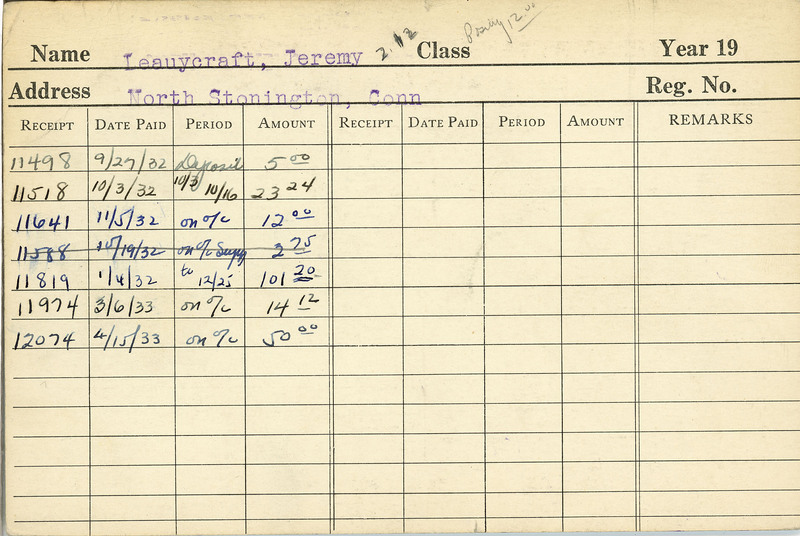 Name Leauycraft, Jeremy 2.12 Class 12.00 Year 19
Address North Stonington, Conn Reg. No.
RECEIPT DATE PAID PERIOD AMOUNT RECEIPT DATE PAID PERIOD AMOUNT REMARKS
11498 9/27/32 Deposit 5 00
11518 10/3/32 10/3 10/16 23 24
11641 11/5/32 on a/c 12 00
11588 10/19/32 on a/c Supp 2 75
11819 1/4/32 to 12/25 101 20
11974 3/6/33 on a/c 14 12
12074 4/15/33 on a/c 50 00